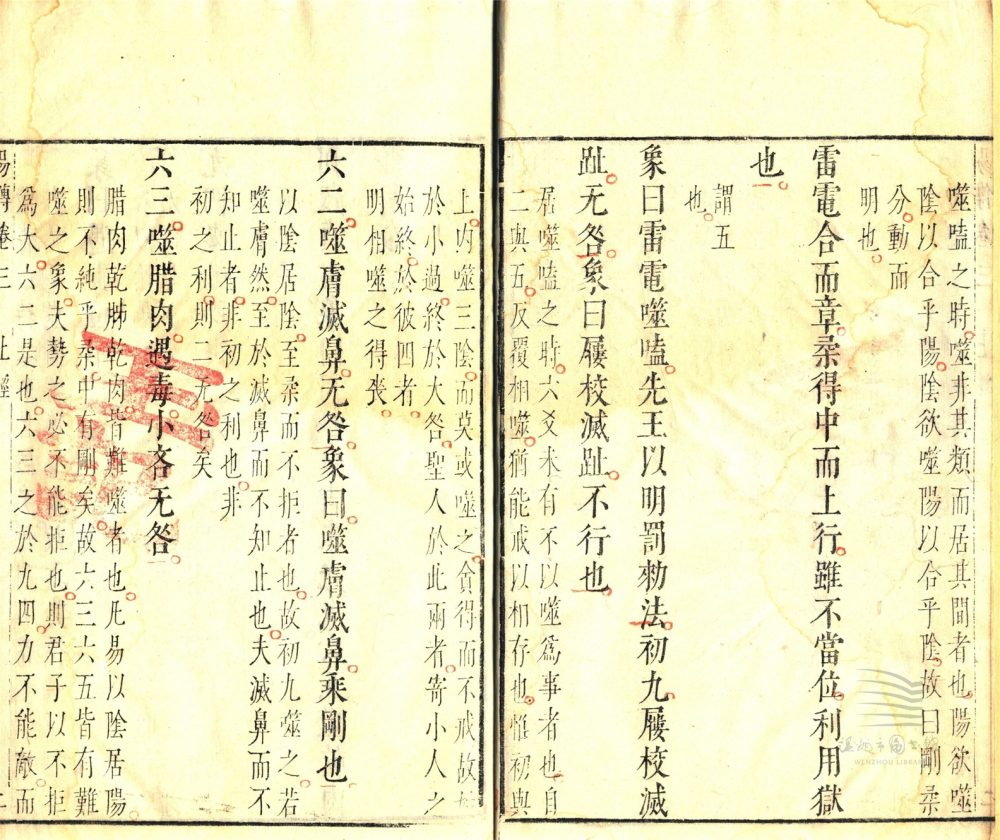 噬嗑之時噬非其類而居其間者也陽欲噬
陰以合乎陽陰欲噬陽以合乎陰故曰剛柔
分動而
明也
雷電合而章柔得中而上行雖不當位利用獄
也
謂五
也
象曰雷電噬嗑先王以明罰勑法初九屨校滅
趾无咎象曰屨校滅趾不行也
居噬嗑之時六爻未有不以噬爲事者也自
二與五反覆相噬猶能戒以相存也惟初與
上內噬三陰而莫或噬之貪得而不戒故
於小過終於大咎聖人於此兩者寄小人之
始終於彼四者
明相噬之得喪
六二噬膚滅鼻无咎象曰噬膚滅鼻乘剛也
以陰居陰至柔而不拒者也故初九噬之若
噬膚然至於滅鼻而不知止也夫滅鼻而不
知止者非初之利也非
初之利則二无咎矣
六三噬腊肉遇毒小吝无咎
腊肉乾胏乾肉皆難噬者也凡易以陰居陽
則不純乎柔中有剛矣故六三六五皆有難
噬之象夫勢之必不能拒也則君子以不拒
爲大六二是也六三之於九四力不能敵而
易傳卷三
溫州市圖書館
WENZHOU LIBRARY